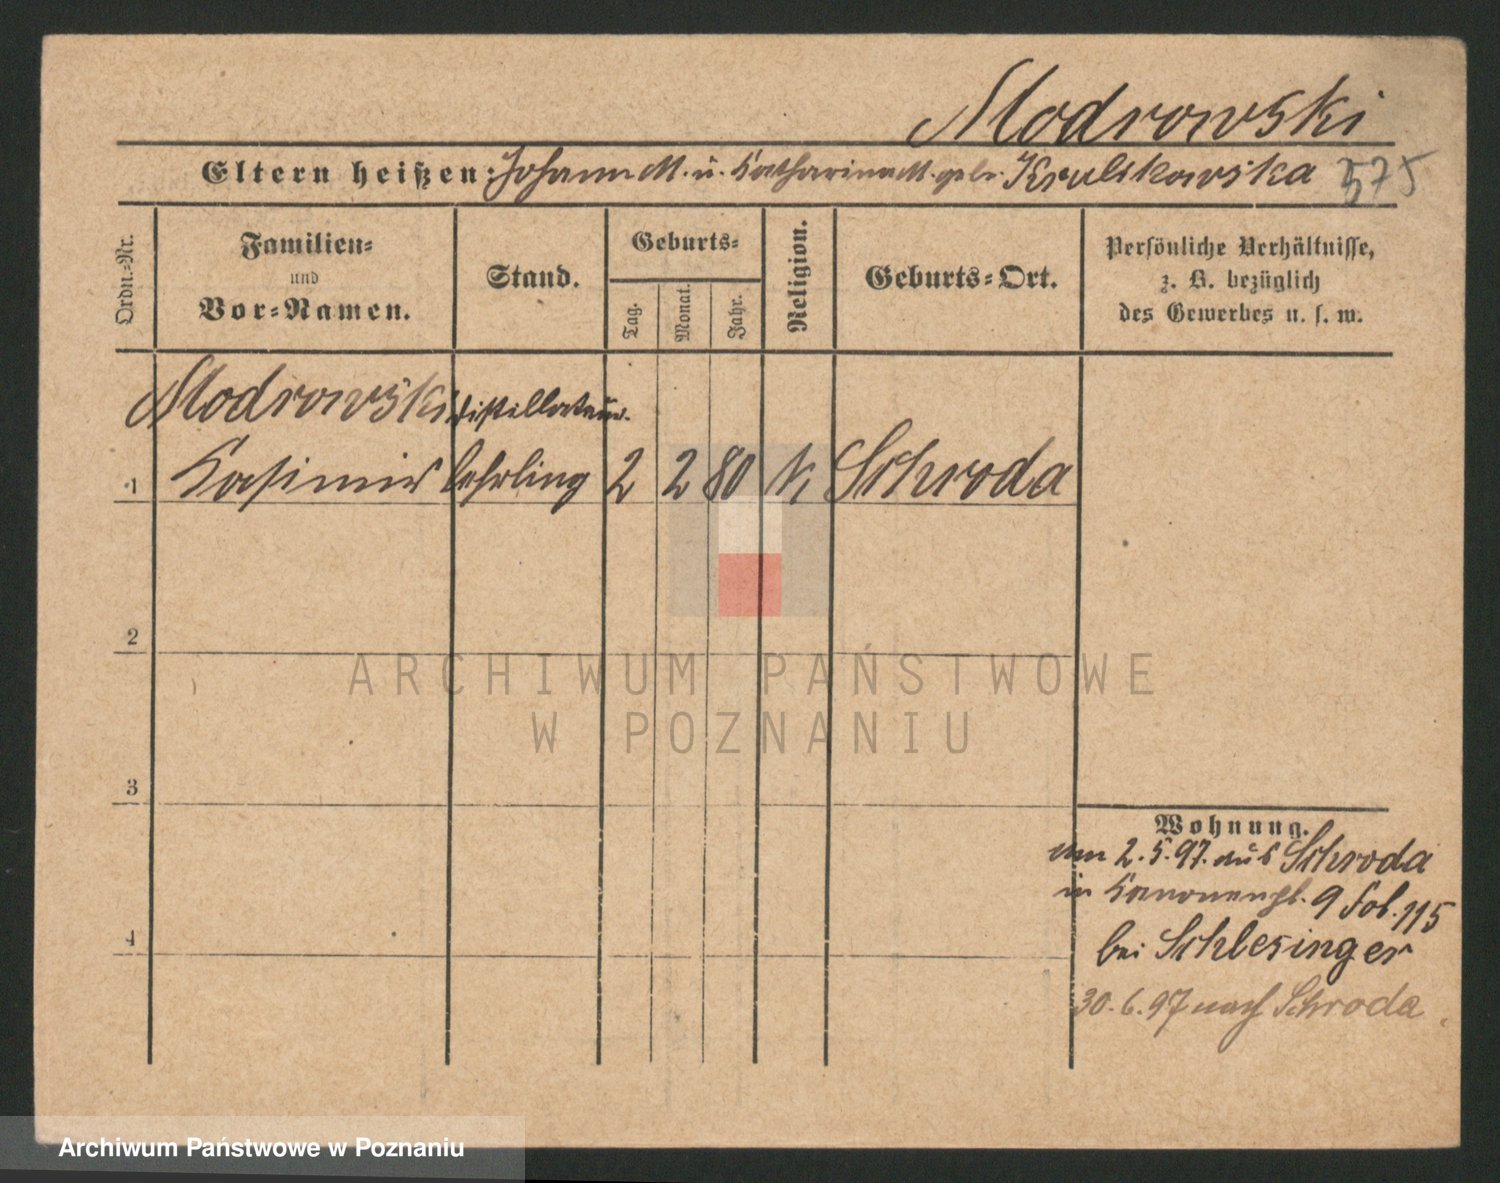 Modrowski
Eltern heißen: Johann M. u. Katharina M. geb. Krulikowska 575
Ordn.-Nr.
Familien-
und
Vor-Namen.
Stand.
Geburts-
Tag.
Monat.
Jahr.
Religion.
Geburts-Ort.
Persönliche Verhältnisse,
z. B. bezüglich
des Gewerbes u. s. w.
Modrowski Distillateur-
1 Kasimir lehrling 2 2 80 k Schroda
2
3
4
Wohnung.
am 2.5.97. aus Schroda
in Kanonenpl. 9 Fol. 115
bei Schlesinger
30.6.97 nach Schroda
ARCHIWUM PAŃSTWOWE
W POZNANIU
Archiwum Państwowe w Poznaniu